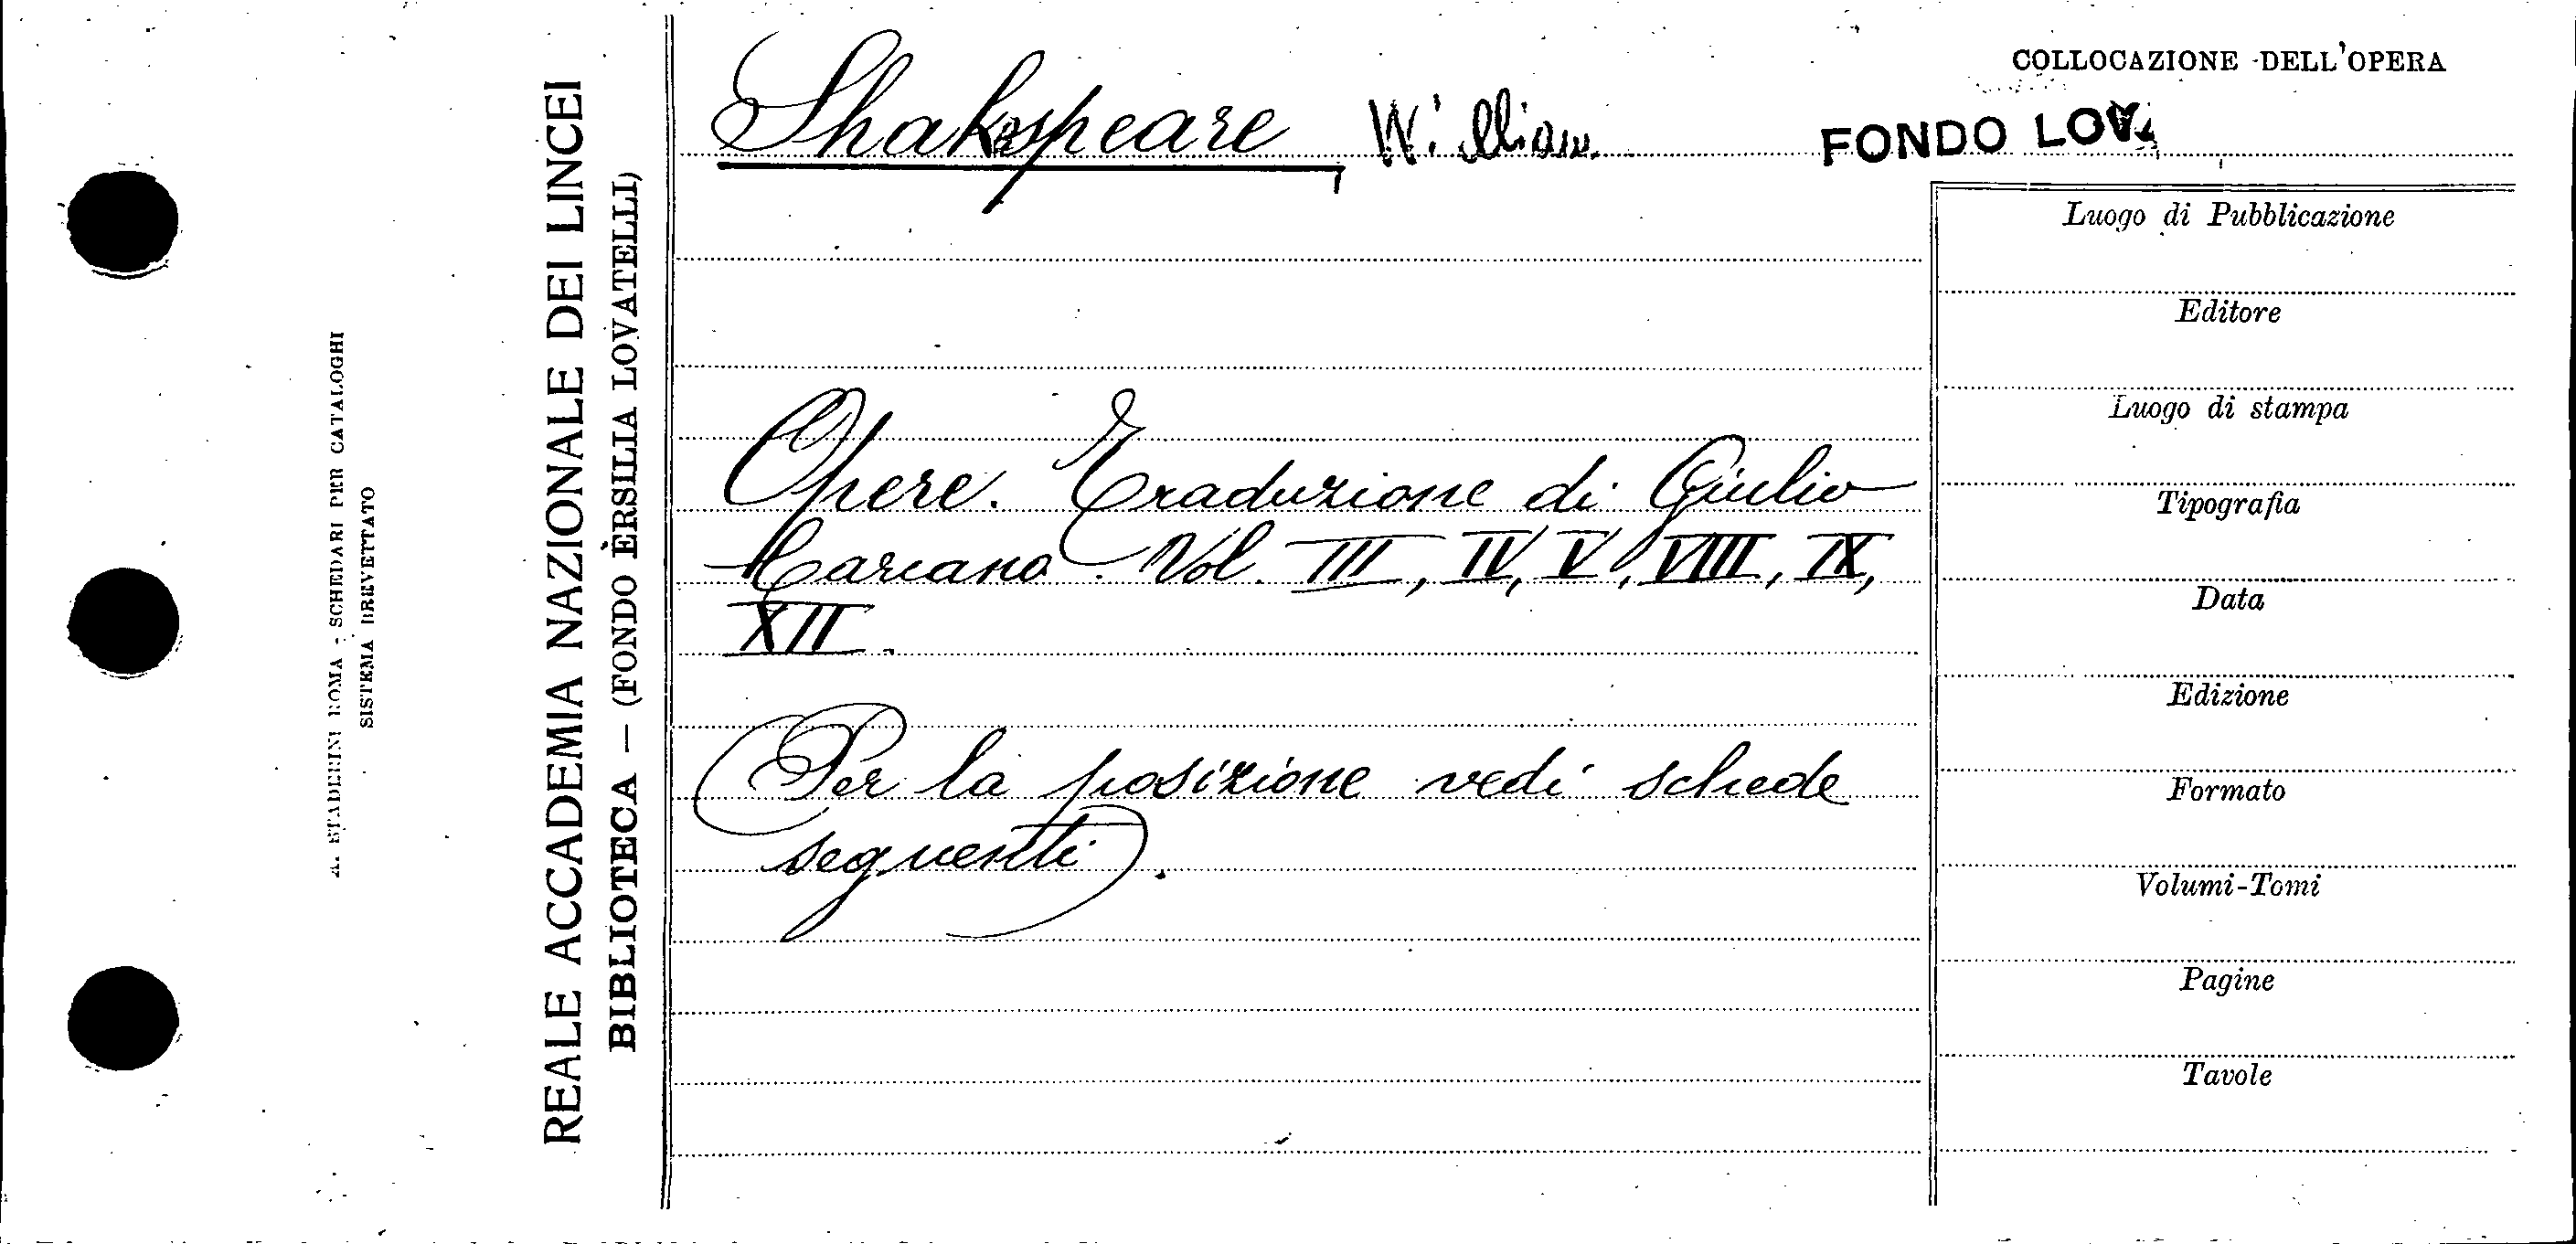 COLLOCAZIONE DELL'OPERA
Shakespeare, William
FONDO LOV.
Opere. Traduzione di Giulio
Carcano. Vol. III, IV, V, VIII, IX,
XII.
(Per la posizione vedi schede
seguenti).
Luogo di Pubblicazione
Editore
Luogo di stampa
Tipografia
Data
Edizione
Formato
Volumi-Tomi
Pagine
Tavole
REALE ACCADEMIA NAZIONALE DEI LINCEI
BIBLIOTECA — (FONDO ERSILIA LOVATELLI)
A. STADERINI ROMA - SCHEDARI PER CATALOGHI
SISTEMA BREVETTATO